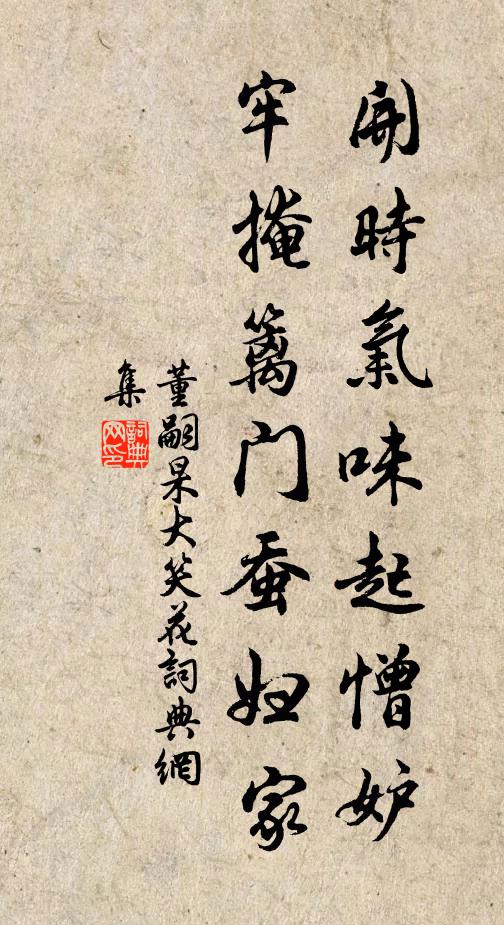 開時氣味起憎妒
牢掩籬門蚕妇家
董嗣杲大笑花詞典網
集
詞典
网印